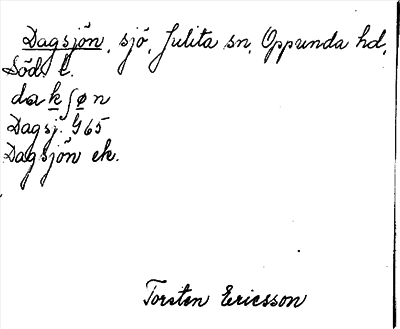 Dagsjön, sjö, Julita sn, Oppunda hd,
Söd. l.
dakʃøn
Dagsj. G65
Dagsjön ek.
Torsten Ericsson